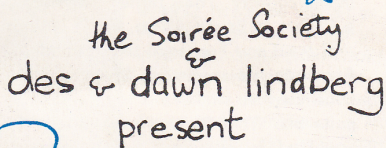 the Soirée Society
&
des & dawn lindberg
present